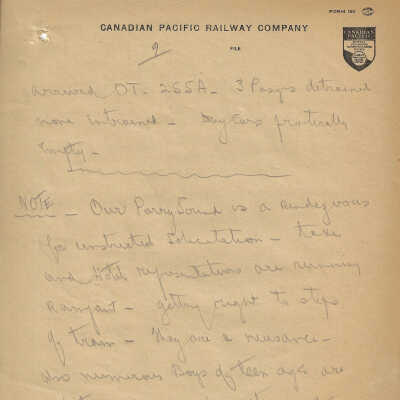 FORM 190
CANADIAN PACIFIC RAILWAY COMPANY
CANADIAN
PACIFIC
2
FILE
arrived OT. 255A. 3 Pasgs detrained
none entrained - Day Cars practically
Empty -
NOTE - Our Parry Sound is a rendezvous
for unrestricted Solicitation - taxi
and Hotel representatives are running
Rampant - getting right to steps
of train - They are a nuisance -
also numerous Boys of teen ages are